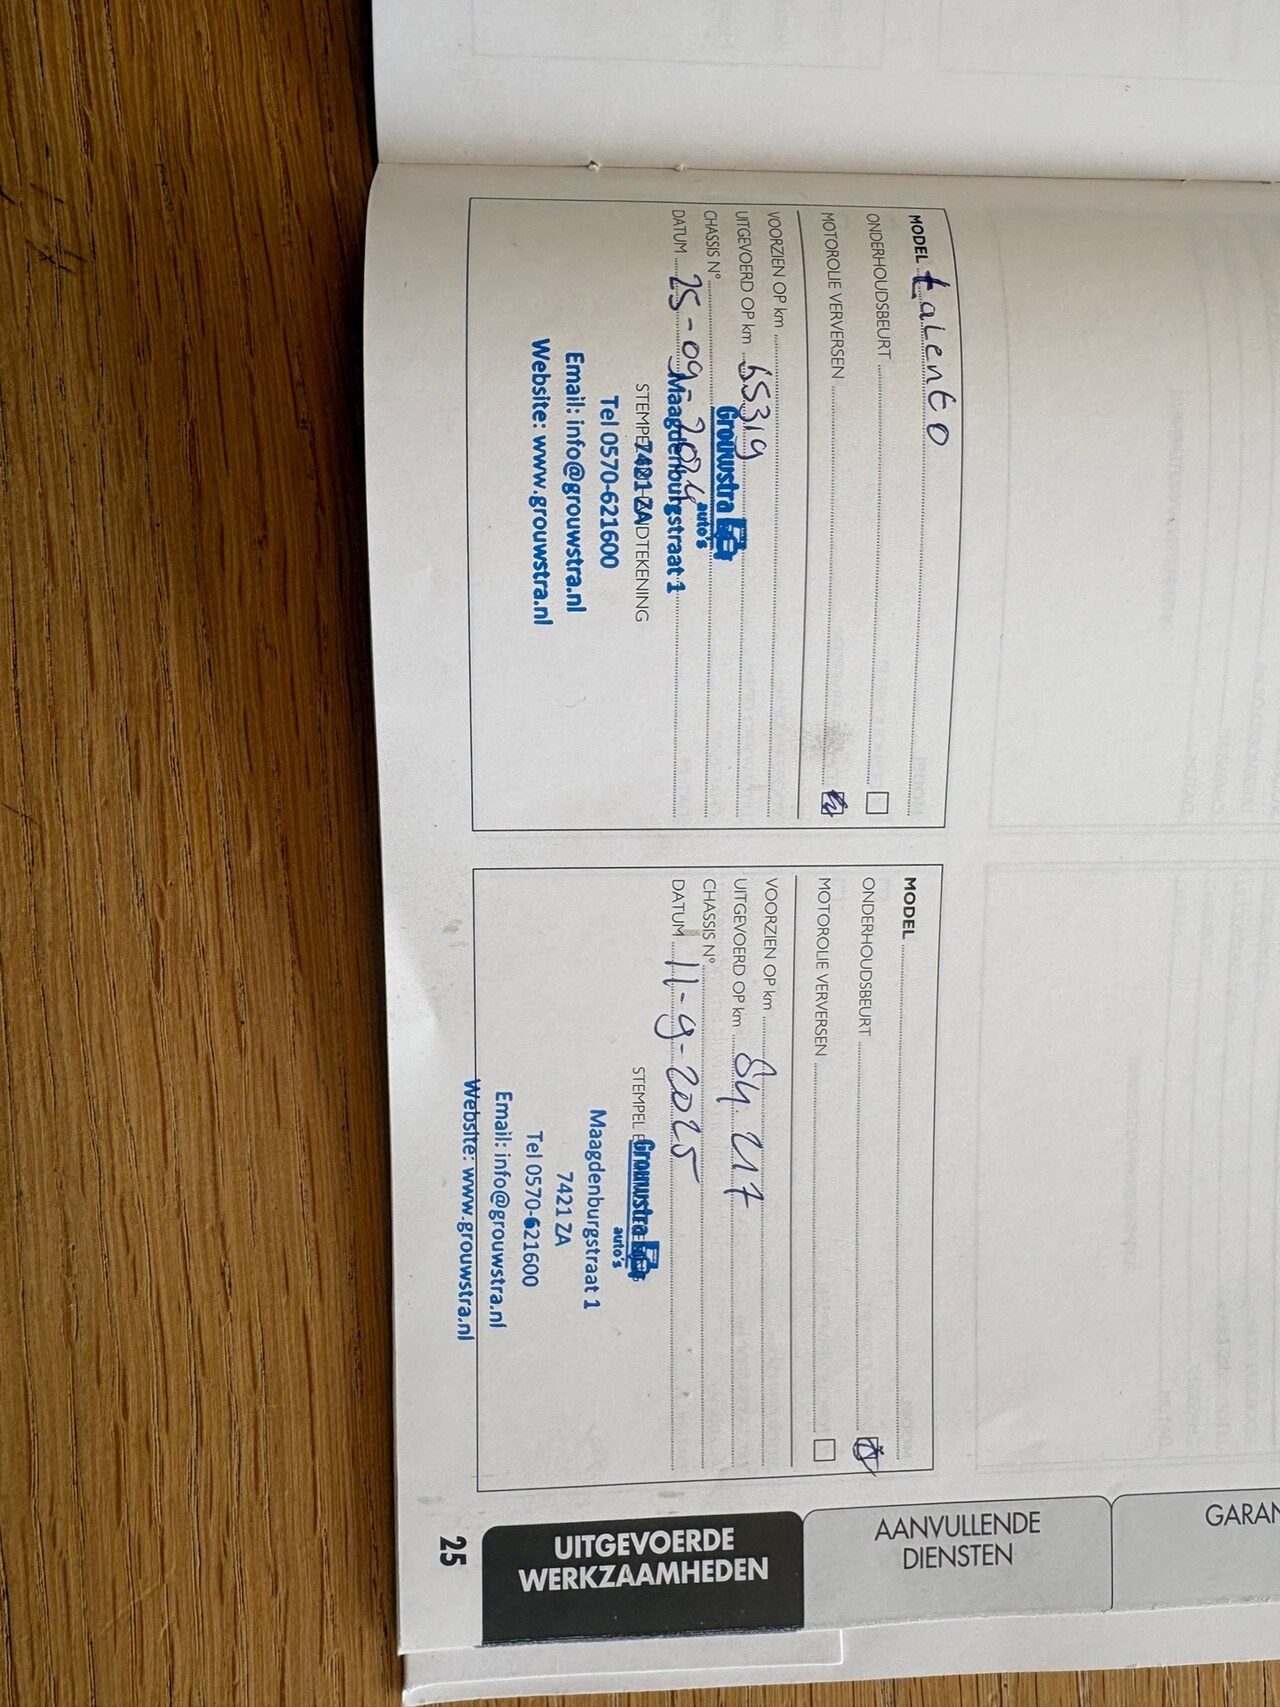 MODEL talento
ONDERHOUDSBEURT
MOTOROLIE VERVERSEN
VOORZIEN OP km
UITGEVOERD OP km 65319
CHASSIS N°
DATUM 25-09-2024
STEMPEL HANDTEKENING
Grouwstra
auto's
Maagdenburgstraat 1
7421 ZA
Tel 0570-621600
Email: info@grouwstra.nl
Website: www.grouwstra.nl
MODEL
ONDERHOUDSBEURT
MOTOROLIE VERVERSEN
VOORZIEN OP km
UITGEVOERD OP km
CHASSIS N°
DATUM 11-9-2025
STEMPEL
Grouwstra
auto's
Maagdenburgstraat 1
7421 ZA
Tel 0570-621600
Email: info@grouwstra.nl
Website: www.grouwstra.nl
25
UITGEVOERDE
WERKZAAMHEDEN
AANVULLENDE
DIENSTEN
GARAN